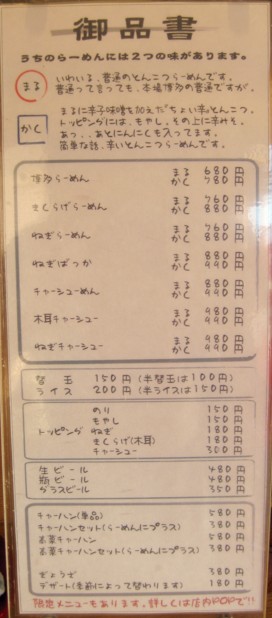 御品書
うちのらーめんには2つの味があります。
まる いわいる、普通のとんこつらーめんです。
普通って言っても、本場博多の普通ですが。
かく まるに辛子味噌を加えた「ちょい辛」とんこつ。
トッピングには、もやし、その上に辛みそ。
あっ、、あとにんにくも入ってます。
簡単な話、辛いとんこつらーめんです。
博多らーめん まる 680円
かく 780円
きくらげらーめん まる 760円
かく 880円
ねぎらーめん まる 770円
かく 880円
ねぎばっか まる 880円
かく 990円
チャーシューめん まる 880円
かく 990円
木耳チャーシュー まる 980円
かく 990円
ねぎチャーシュー まる 980円
かく 990円
替玉 150円(半替玉は100円)
ライス 200円(半ライスは150円)
のり 150円
もやし 150円
トッピング ねぎ 180円
きくらげ(木耳) 180円
チャーシュー 300円
生ビール 480円
瓶ビール 480円
グラスビール 350円
チャーハン(単品) 580円
チャーハンセット(らーめんにプラス) 380円
高菜チャーハン 580円
高菜チャーハンセット(らーめんにプラス) 380円
ぎょうざ 380円
デザート(季節によって替わります) 180円
限定メニューもあります。詳しくは店内POPで!!